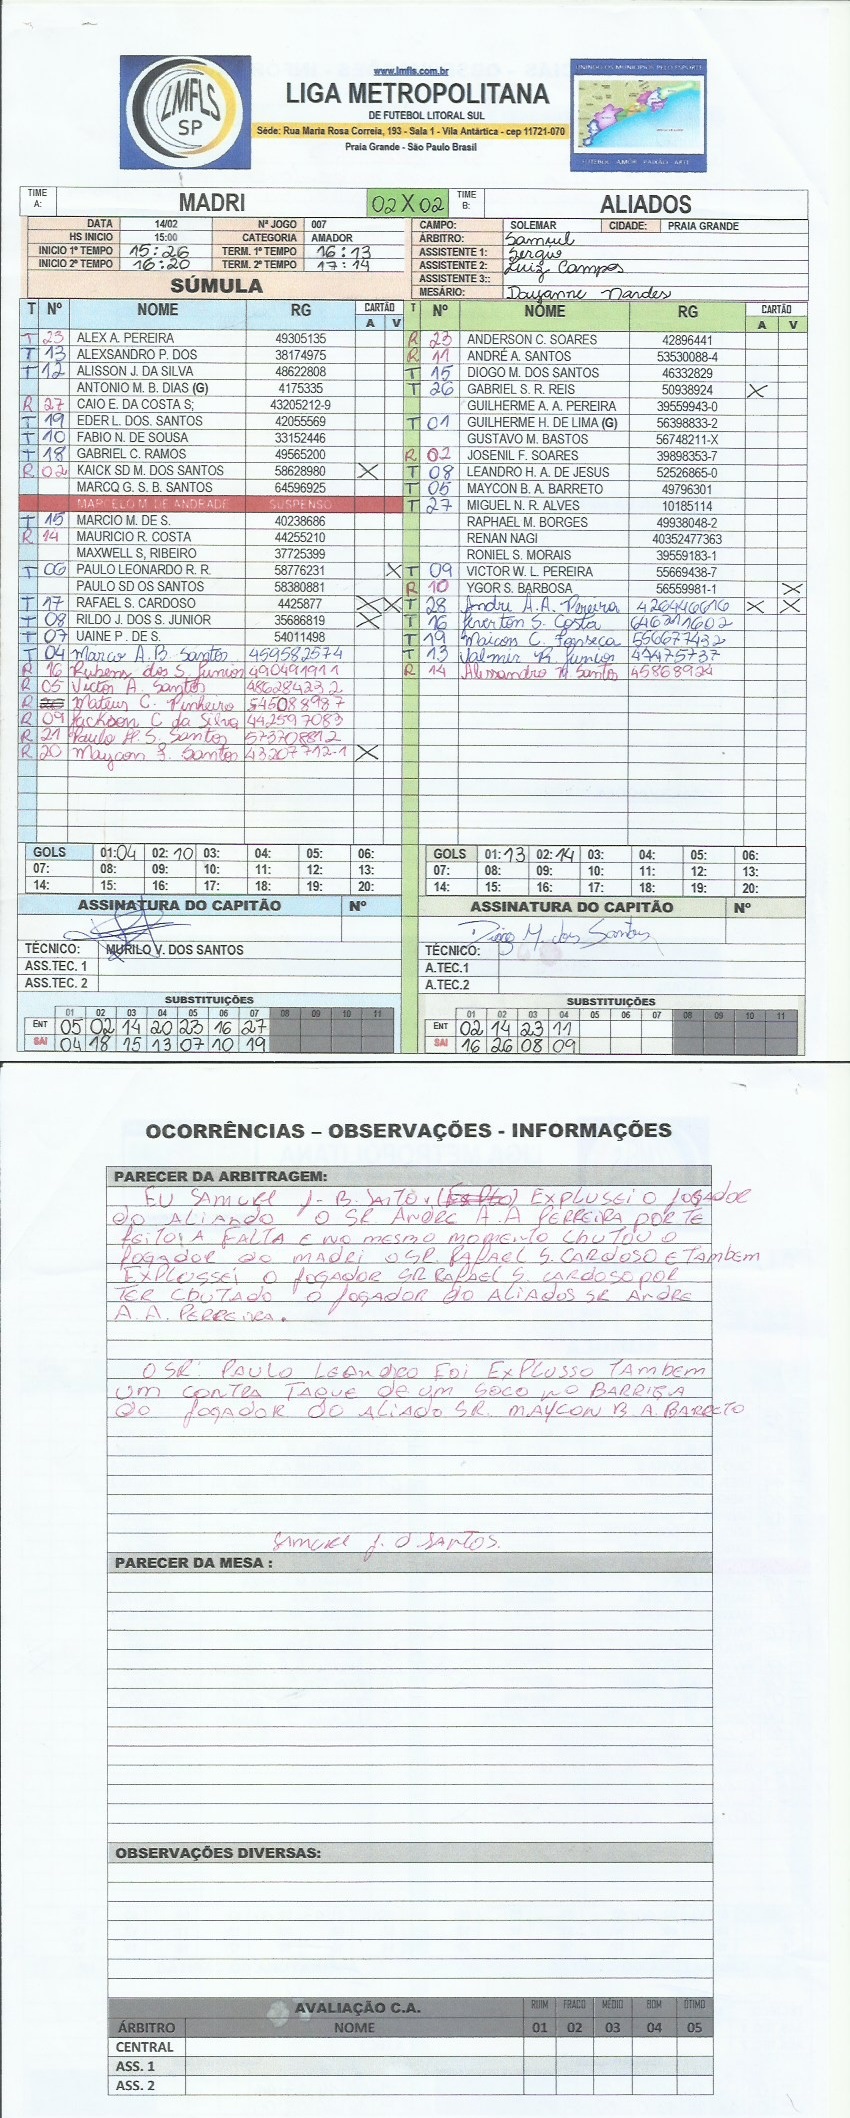 LMFLS
SP
www.lmfls.com.br
LIGA METROPOLITANA
DE FUTEBOL LITORAL SUL
Séde: Rua Maria Rosa Correia, 193 - Sala 1 - Vila Antártica - cep 11721-070
Praia Grande - São Paulo Brasil
UNINDO OS MUNICIPIOS PELO ESPORTE
FUTEBOL AMOR PAIXÃO ARTE
TIME A: MADRI 02 X 02 TIME B: ALIADOS
DATA 14/02 Nº JOGO 007 CAMPO: SOLEMAR CIDADE: PRAIA GRANDE
HS INICIO 15:00 CATEGORIA AMADOR ÁRBITRO: Samuel
INICIO 1º TEMPO 15:26 TERM. 1º TEMPO 16:13 ASSISTENTE 1: Sergio
INICIO 2º TEMPO 16:20 TERM. 2º TEMPO 17:14 ASSISTENTE 2: Luiz Campos
ASSISTENTE 3::
SÚMULA MESÁRIO: Dayanne Nardes
T Nº NOME RG CARTÃO A V T Nº NOME RG CARTÃO A V
T 23 ALEX A. PEREIRA 49305135 R 23 ANDERSON C. SOARES 42896441
T 13 ALEXSANDRO P. DOS 38174975 R 11 ANDRÉ A. SANTOS 53530088-4
T 12 ALISSON J. DA SILVA 48622808 T 15 DIOGO M. DOS SANTOS 46332829
ANTONIO M. B. DIAS (G) 4175335 T 26 GABRIEL S. R. REIS 50938924 X
R 27 CAIO E. DA COSTA S; 43205212-9 GUILHERME A. A. PEREIRA 39559943-0
T 19 EDER L. DOS. SANTOS 42055569 T 01 GUILHERME H. DE LIMA (G) 56398833-2
T 10 FABIO N. DE SOUSA 33152446 GUSTAVO M. BASTOS 56748211-X
T 18 GABRIEL C. RAMOS 49565200 R 02 JOSENIL F. SOARES 39898353-7
R 02 KAICK SD M. DOS SANTOS 58628980 X T 08 LEANDRO H. A. DE JESUS 52526865-0
MARCQ G. S. B. SANTOS 64596925 T 05 MAYCON B. A. BARRETO 49796301
MARCELO M. DE ANDRADE SUSPENSO T 27 MIGUEL N. R. ALVES 10185114
T 15 MARCIO M. DE S. 40238686 RAPHAEL M. BORGES 49938048-2
R 14 MAURICIO R. COSTA 44255210 RENAN NAGI 40352477363
MAXWELL S, RIBEIRO 37725399 RONIEL S. MORAIS 39559183-1
T 06 PAULO LEONARDO R. R. 58776231 X T 09 VICTOR W. L. PEREIRA 55669438-7
PAULO SD OS SANTOS 58380881 R 10 YGOR S. BARBOSA 56559981-1 X
T 17 RAFAEL S. CARDOSO 4425877 X X T 28 Andre A.A. Pereira 426446616 X X
T 08 RILDO J. DOS S. JUNIOR 35686819 X T 16 Everton S. Costa 646211602
T 07 UAINE P. DE S. 54011498 T 19 Maicon C. Fonseca 556677432
T 04 Marco A.B. Santos 459582574 T 13 Valmir R. Junior 47475737
R 16 Rubens dos S. Junior 490491911 R 14 Alessandro Santos 45868924
R 05 Victor A. Santos 486284232
R Mateus C. Pinheiro 545088987
R 09 Jackson C da Silva 442597083
R 21 Paulo H. S. Santos 573708812
R 20 Maycon F. Santos 43207712-1 X
GOLS 01: 04 02: 10 03: 04: 05: 06: GOLS 01: 13 02: 14 03: 04: 05: 06:
07: 08: 09: 10: 11: 12: 13: 07: 08: 09: 10: 11: 12: 13:
14: 15: 16: 17: 18: 19: 20: 14: 15: 16: 17: 18: 19: 20:
ASSINATURA DO CAPITÃO Nº ASSINATURA DO CAPITÃO Nº
Diogo M. dos Santos
TÉCNICO: MURILO V. DOS SANTOS TÉCNICO:
ASS.TEC. 1 A.TEC.1
ASS.TEC. 2 A.TEC.2
SUBSTITUIÇÕES SUBSTITUIÇÕES
01 02 03 04 05 06 07 08 09 10 11 01 02 03 04 05 06 07 08 09 10 11
ENT 05 02 14 20 23 16 27 ENT 02 14 23 11
SAI 04 18 15 13 07 10 19 SAI 16 26 08 09
OCORRÊNCIAS – OBSERVAÇÕES - INFORMAÇÕES
PARECER DA ARBITRAGEM:
EU SAMUEL J. B. SANTOS EXPLUSEI O JOGADOR
DO ALIANDO O SR ANDRE A.A PERREIRA POR TE
FEITO A FALTA E NO MESMO MOMENTO CHUTOU O
JOGADOR DO MADRI O SR. RAFAEL S. CARDOSO E TAMBEM
EXPLUSSEI O JOGADOR SR RAFAEL S. CARDOSO POR
TER CHUTADO O JOGADOR DO ALIADOS SR ANDRE
A.A. PERREIRA.
O SR. PAULO LEANDRO FOI EXPLUSSO TAMBEM
UM CONTRA TAQUE DE UM SOCO NO BARRIGA
DO JOGADOR DO ALIADO SR. MAYCON B. A. BARRETO
SAMUEL J. D SANTOS.
PARECER DA MESA :
OBSERVAÇÕES DIVERSAS:
AVALIAÇÃO C.A. RUIM FRACO MÉDIO BOM ÓTIMO
ÁRBITRO NOME 01 02 03 04 05
CENTRAL
ASS. 1
ASS. 2